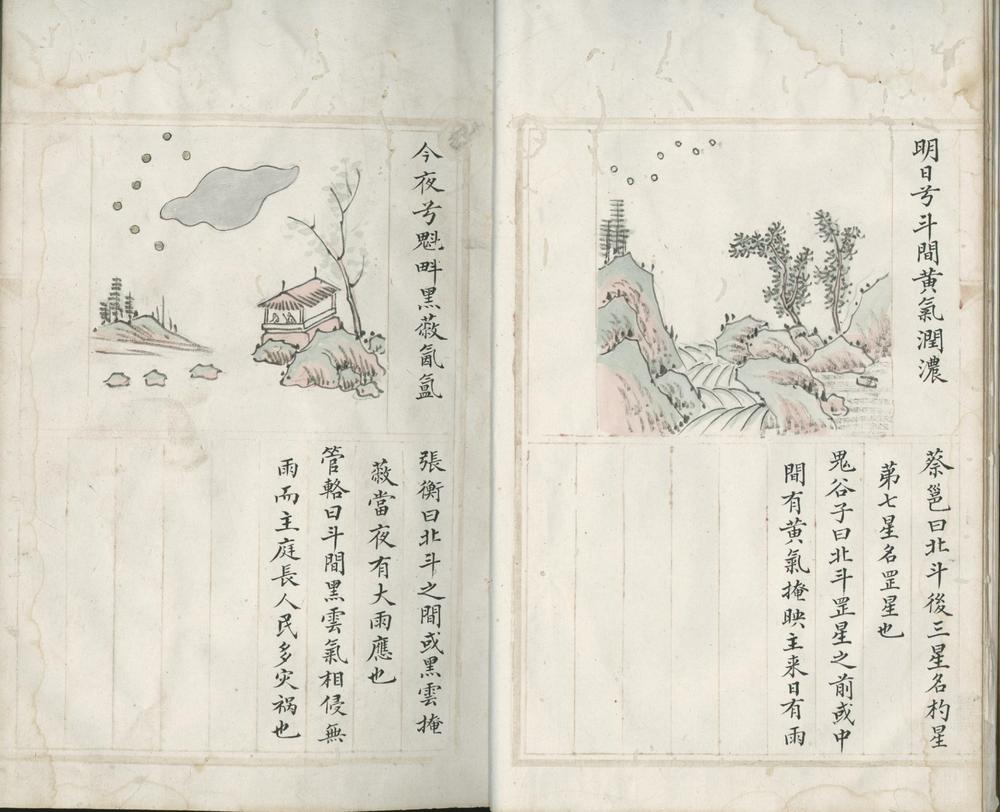 明日兮斗間黃氣潤濃
蔡邕曰北斗後三星名杓星
第七星名罡星也
鬼谷子曰北斗罡星之前或中
間有黃氣掩映主来日有雨
今夜兮魁畔黑蔽氤氳
張衡曰北斗之間或黑雲掩
蔽當夜有大雨應也
管輅曰斗間黑雲氣相侵無
雨而主庭長人民多灾祸也